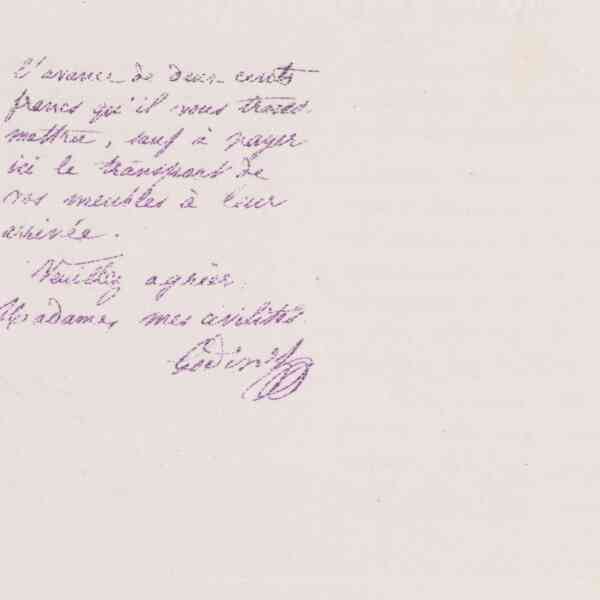 l'avance de deux cents
francs qu'il vous
mettre, sauf à payer
ici le transport de
vos meubles à leur
arrivée.
Veuillez agréer
Madame, mes civilités.
Godin